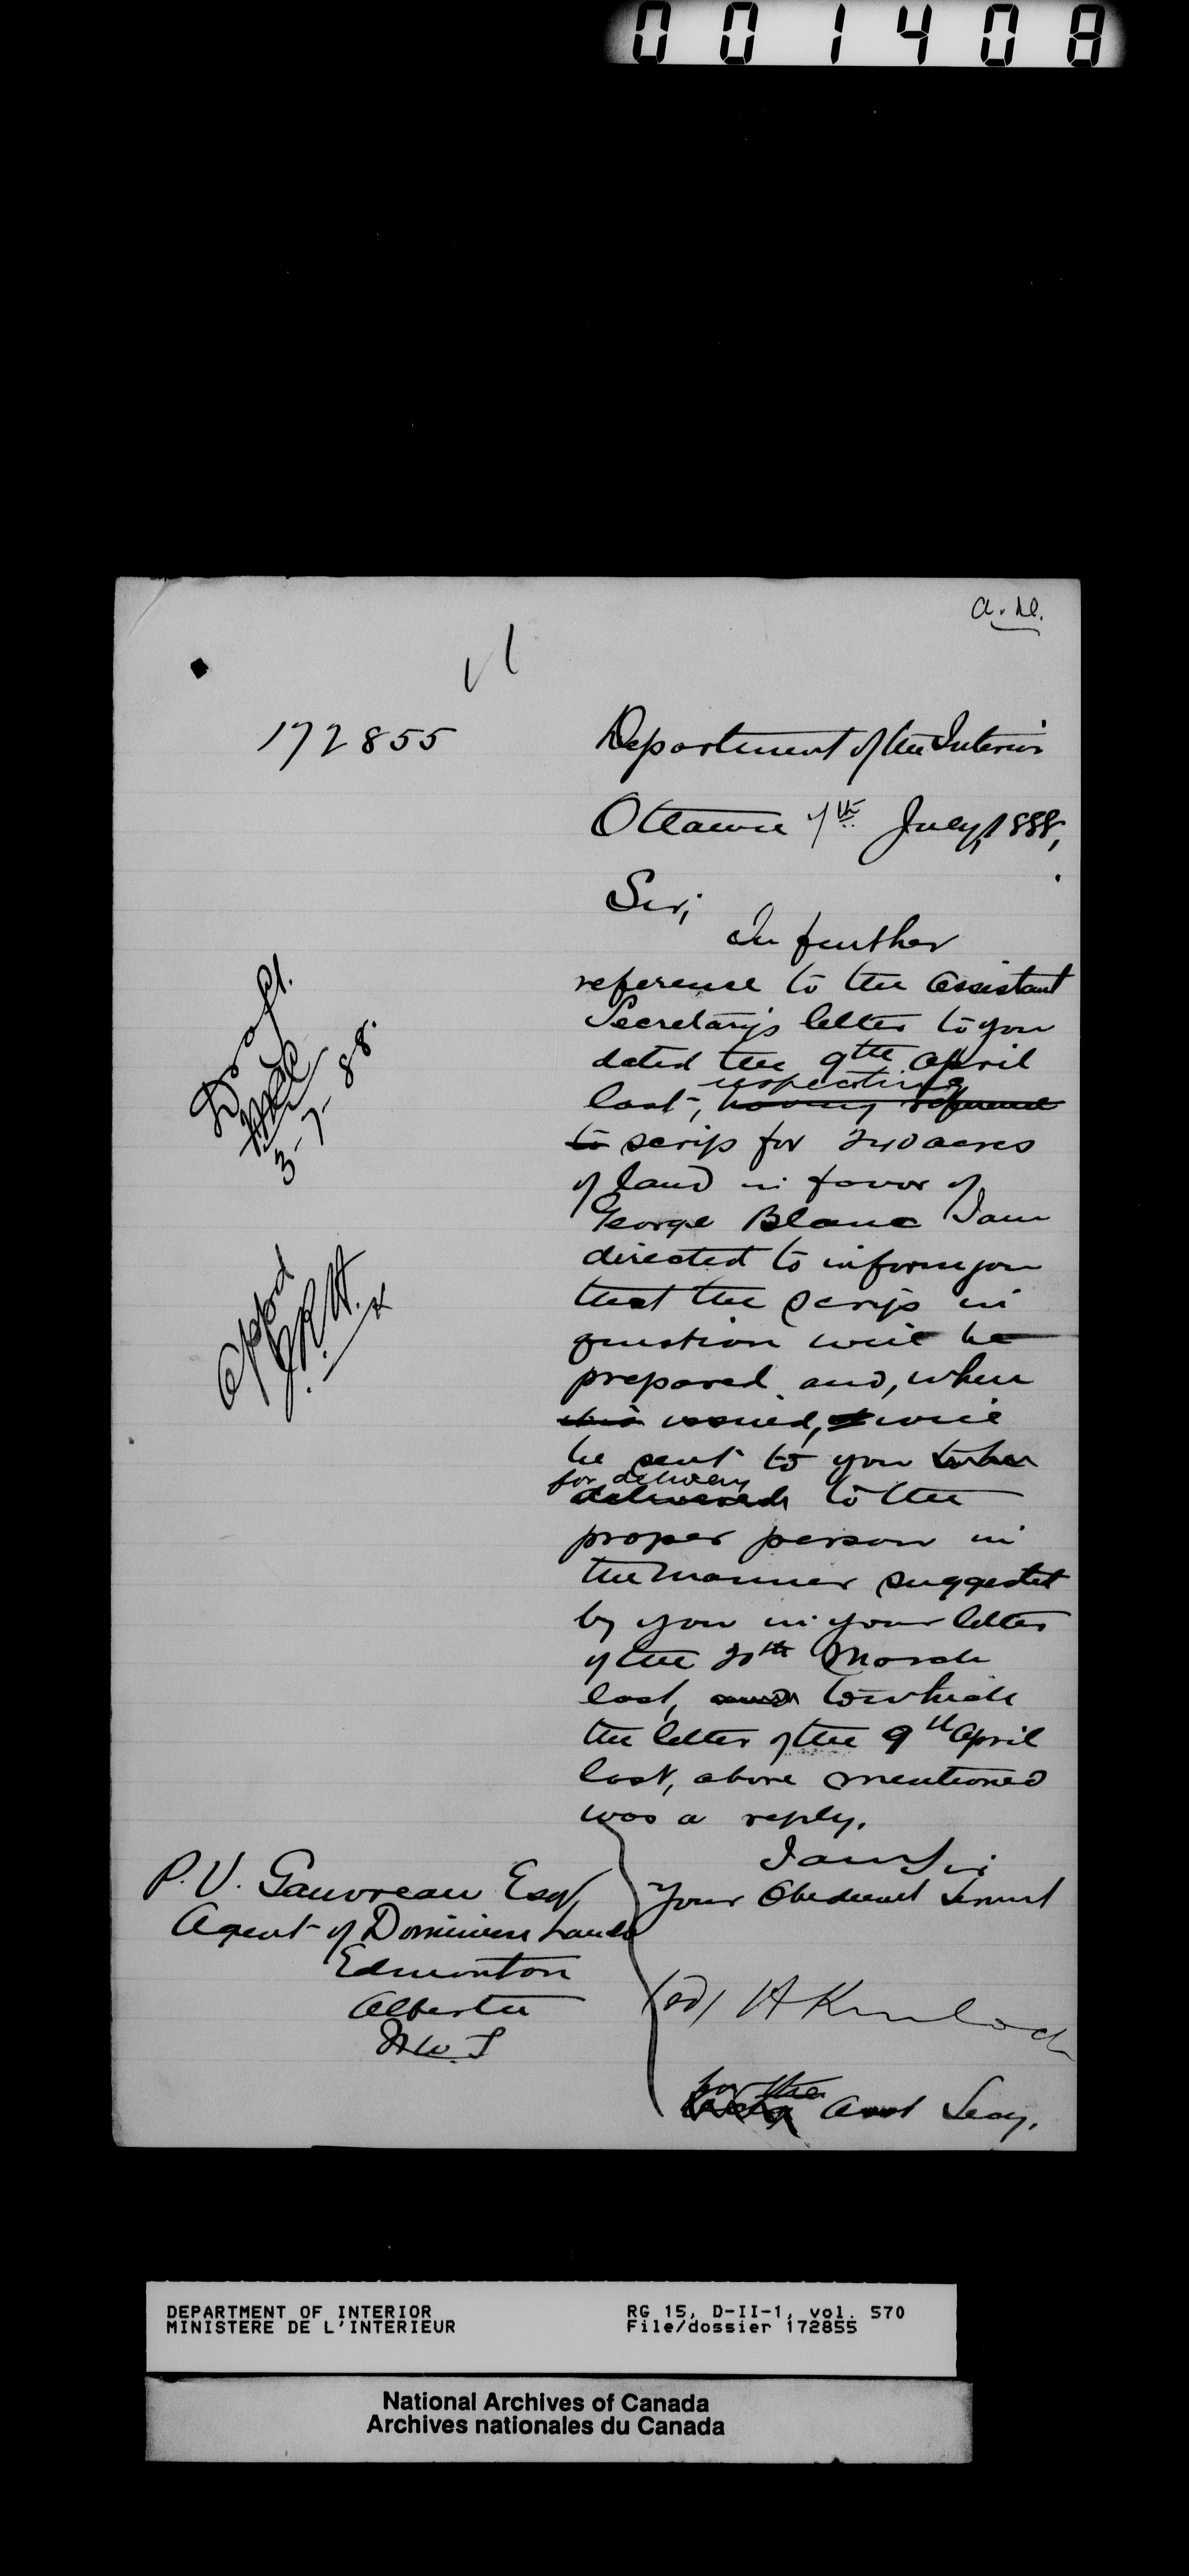 001408
a.M.
172855
Department of the Interior
Ottawa 7th July, 1888,
Sir,
In further
reference to the Assistant
Secretary's letter to you
dated the 9th April
respecting
last, having reference
to scrip for 240 acres
of land in favor of
George Blanc I am
directed to inform you
that the scrip in
question will be
prepared and, when
issued, will
be sent to you to be
for delivery
delivered to the
proper person in
the manner suggested
by you in your letter
of the 20th March
last, and to which
the letter of the 9th April
last, above mentioned
was a reply.
I am Sir
Your Obedient Servant
(sd) H Kinloch
for the
Asst Secy.
Draft
3-7-88.
Appd
P. V. Gauvreau Esq,
Agent of Dominion Lands
Edmonton
Alberta
N.W.T
DEPARTMENT OF INTERIOR
MINISTERE DE L'INTERIEUR
RG 15, D-II-1, vol. 570
File/dossier 172855
National Archives of Canada
Archives nationales du Canada